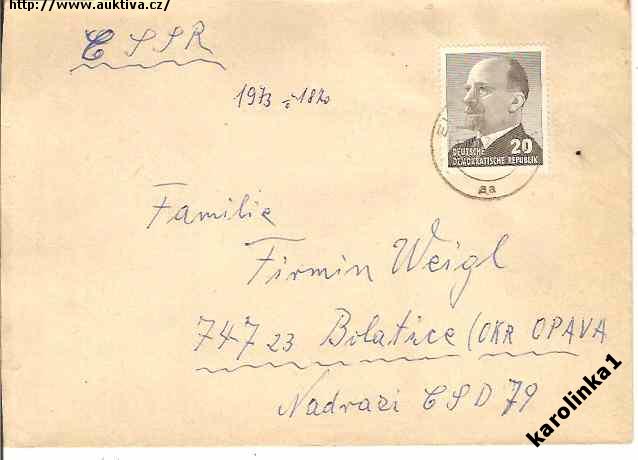 http://www.auktiva.cz/
ČSSR
1973 - 1820
20
DEUTSCHE
DEMOKRATISCHE REPUBLIK
aa
Familie
Firmin Weigl
747 23 Bolatice (OKR OPAVA
Nadrazi ČSD 79
karolinka1